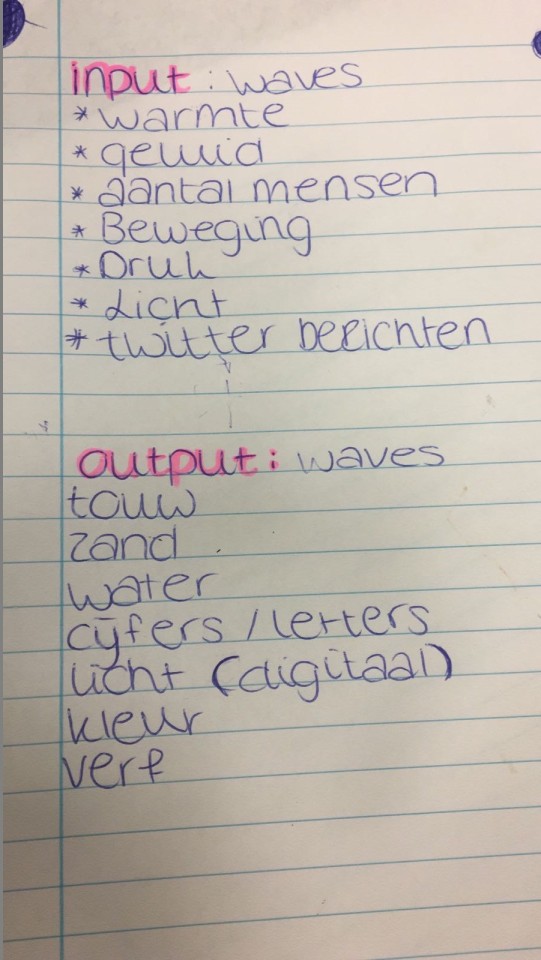 input : waves
* warmte
* geluid
* aantal mensen
* Beweging
* Druk
* Licht
* twitter berichten
output : waves
touw
zand
water
cijfers / letters
licht (digitaal)
kleur
verf